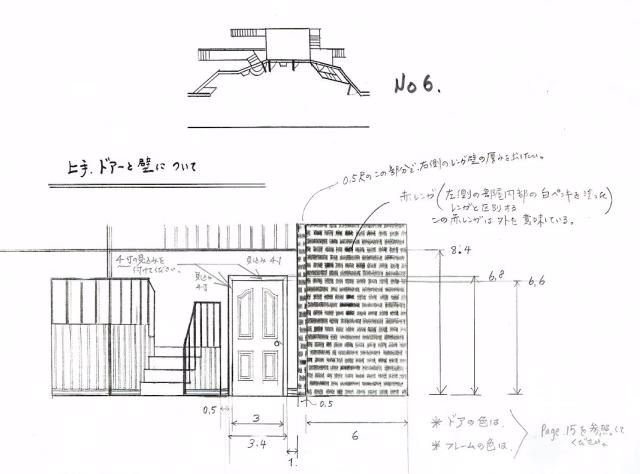 No 6.
上手. ドアーと壁について
0.5尺のこの部分で、右側のレンガ壁の厚みを出したい。
赤レンガ(左側の部屋内部の白ペンキを塗った
レンガと区別する
この赤レンガは外を意味している。
4寸の見込みを
付けてください。
見込み 4寸
見込み
4寸
8.4
6.8
6.6
0.5
3
0.5
3.4
6
1.
※ ドアの色は、
※ フレームの色は、
Page 15を参照して
ください。